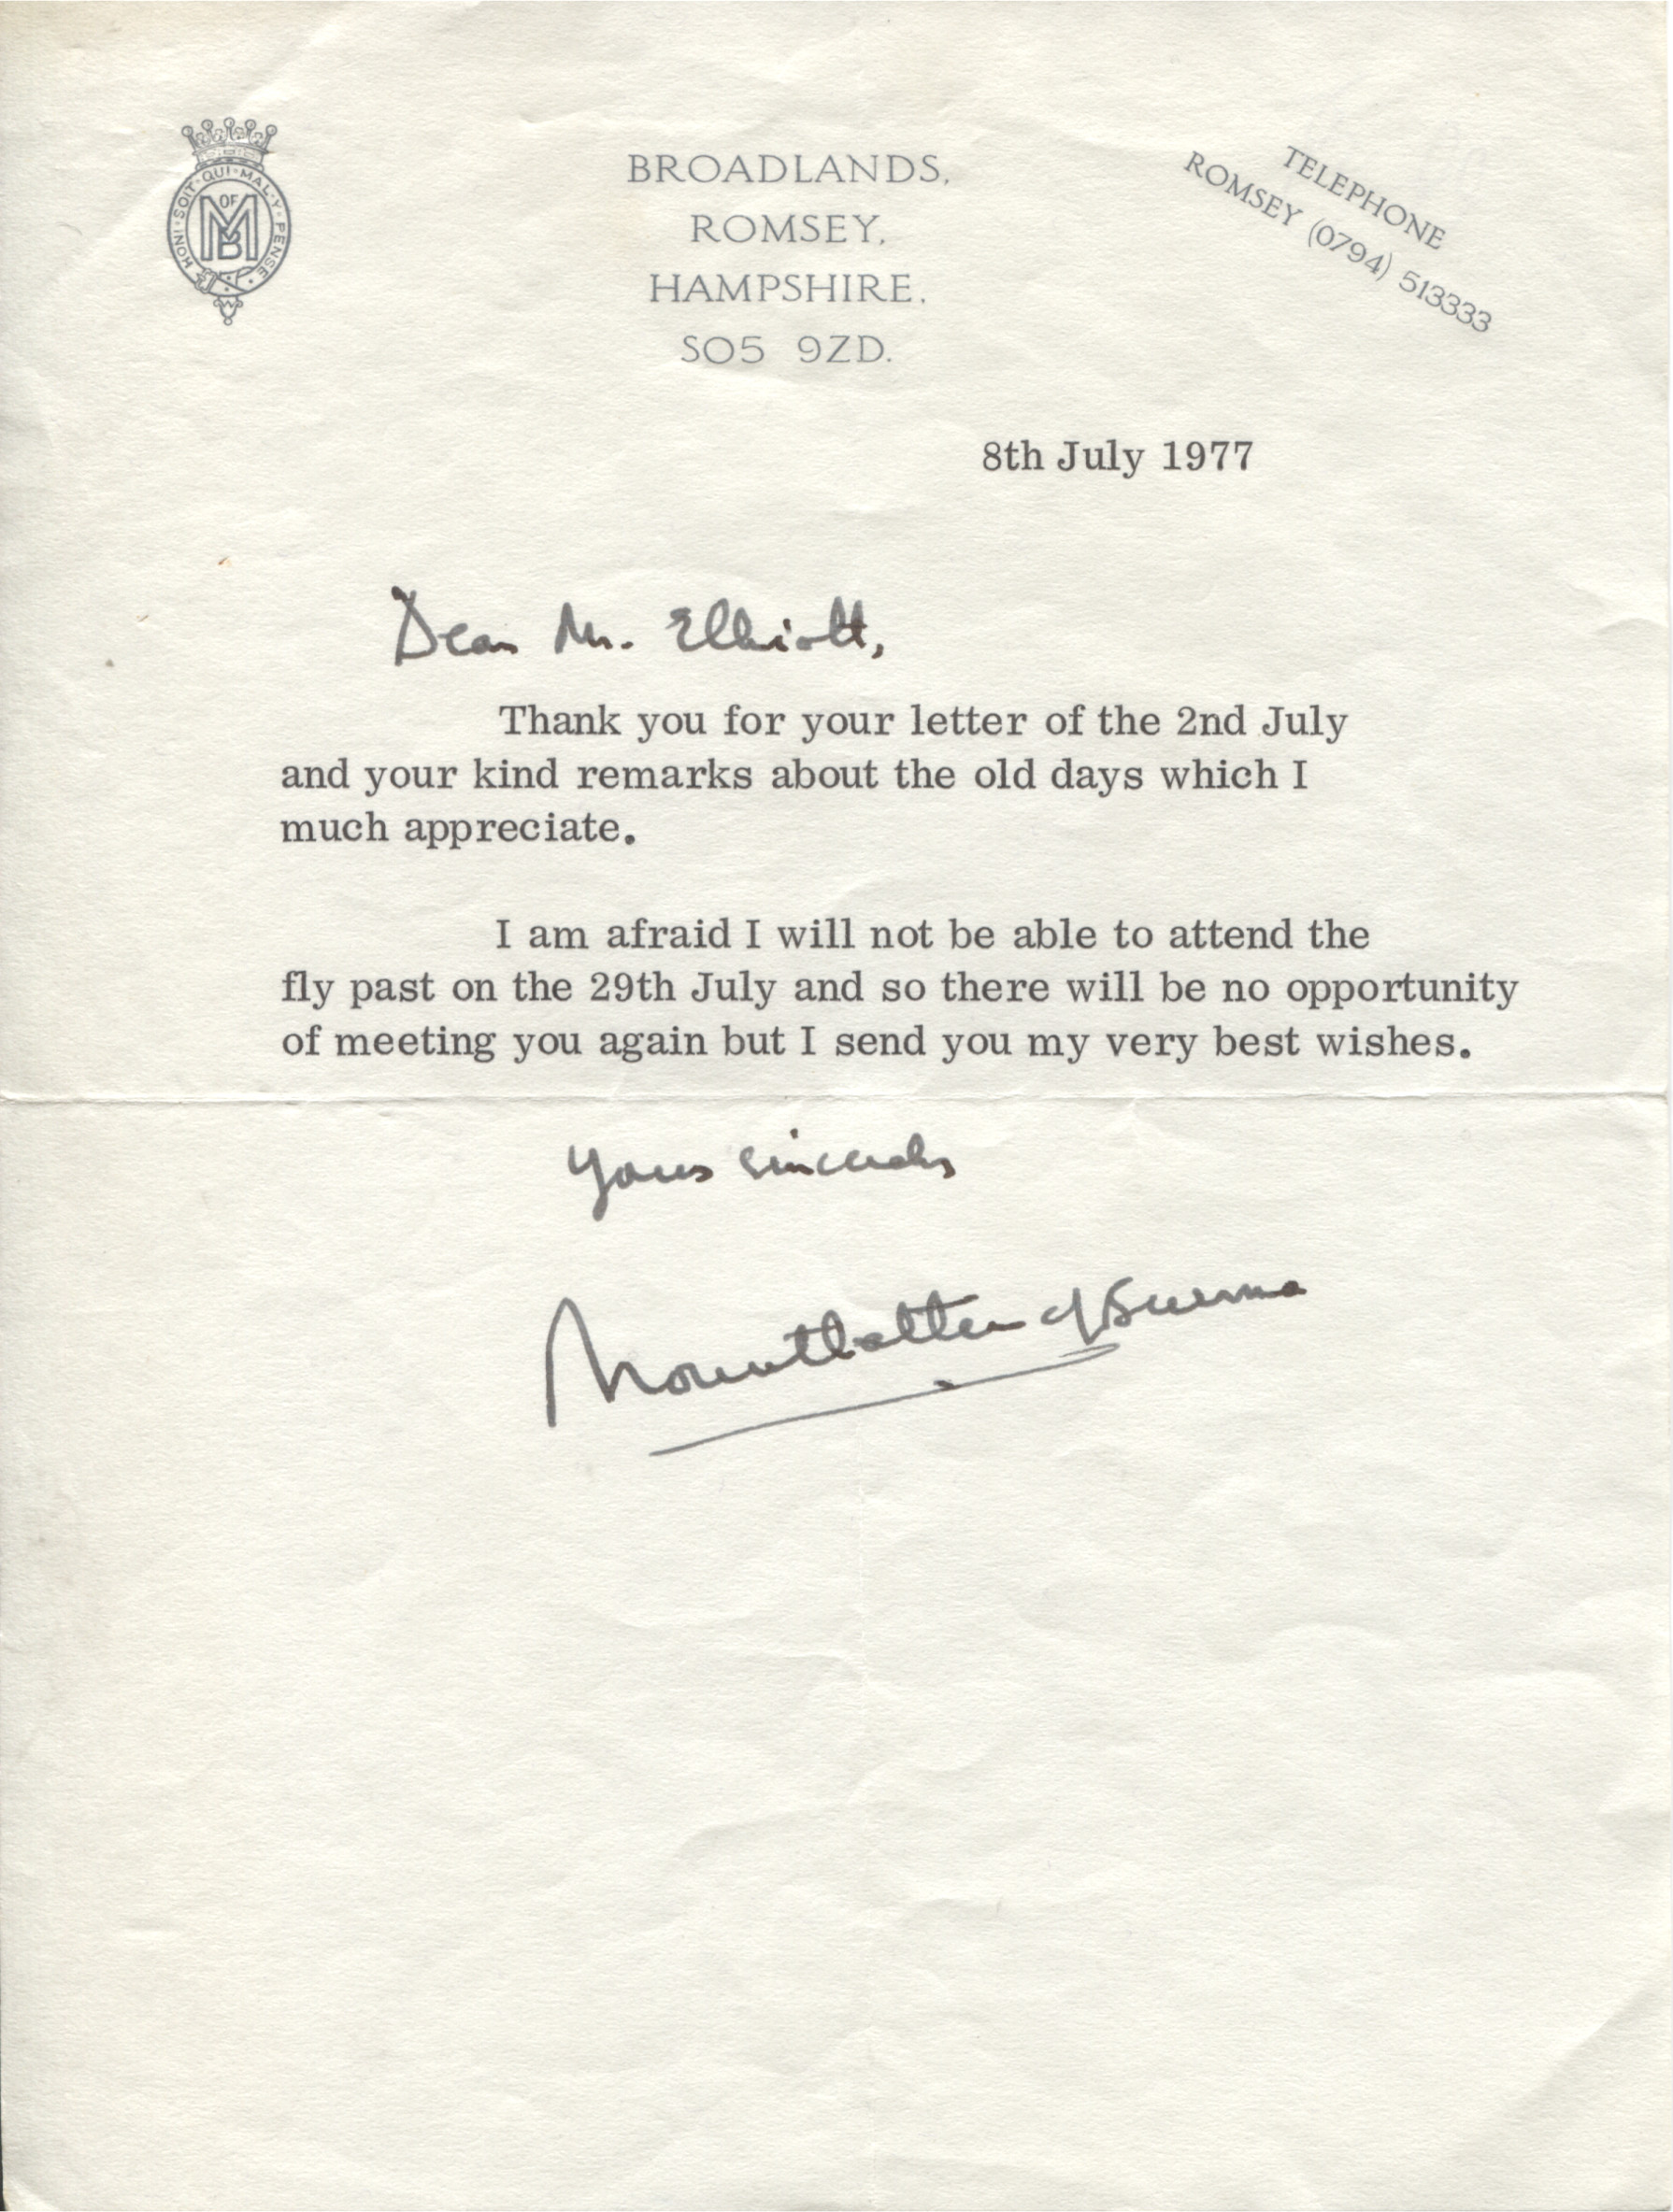 HONI·SOIT·QUI·MAL·Y·PENSE
M OF B
BROADLANDS,
ROMSEY,
HAMPSHIRE.
SO5 9ZD.
TELEPHONE
ROMSEY (0794) 513333
8th July 1977
Dear Mr. Elliott,
Thank you for your letter of the 2nd July
and your kind remarks about the old days which I
much appreciate.
I am afraid I will not be able to attend the
fly past on the 29th July and so there will be no opportunity
of meeting you again but I send you my very best wishes.
Yours sincerely
Mountbatten of Burma